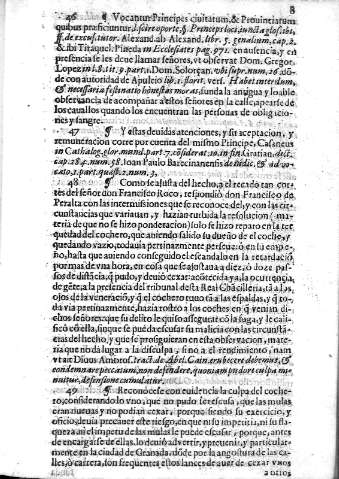 8
46 ¶ Vocantur Principes ciuitatum, & Prouinciarum
quibus præficiuntur,
ff. de excus. tutor. Alexand. ab Alexand. lib. 5. genalium, cap. 2.
& ibi Titaquel. Pineda in Ecclesiastes pag. 971. en ausencia, y en
presencia se les deue llamar señores, vt obseruat Dom. Gregor.
Lopez in l. 8. tit. 9. part. 1. Dom. Solorçan. vbi supr. num. 26. adõ-
de con autoridad de Apuleio lib. 1. florit. vers. Habet interdum,
& necessaria festinatio honestas moras, funda la antigua y loable
observancia de acompañar a estos señores en la calle, apearse de
los cauallos quando los encuentran las personas de obligacio-
nes y sangre.
47 ¶ Y estas deuidas atenciones, y su aceptacion, y
remuneracion corre por cuenta del mismo Principe, Casaneus
in Cathalog. glor. mund. part. 7. considerat. 10. in fin. Gratian. discept.
cap. 184. num. 38. Ioan Paulo Barcinamensis de iudic. & aduo-
cato, 3. part. quæst. 2. num. 3.
48 ¶ Como se ajusta el hecho, el recado tan cor-
tes del señor don Francisco Roco, respondiò don Francisco de
Peralta con las intermisiones que se reconoce del, y con las cir-
cunstancias que variauan, y hazian turbida la resolucion (ma-
teria de que no se hizo ponderacion) solo se hizo reparo en la ter-
quedad del cochero, que auiendo salido su dueño de el coche, y
quedando vazio, todauia pertinazmente perseuerò en la empe-
ño, hasta que auiendo conseguido el escandalo en la retardaciò
por mas de vna hora, en cosa que se ajustaua a diez, ò doze pas-
sos de distãcia, q̃ pudo, y deuiò cesar: acõtecida ya la ocurrẽcia
de gẽte, a la presencia del tribunal desta Real Chãcilleria, tã a los
ojos de la veneracion, y q̃ el cochero tuuo tã a las espaldas, y q̃ to-
da via pertinazmente, hazia rostro a los coches en q̃ venian di-
chos señores: que su delito le quiso assegurar cõ la fuga, y le calif-
ficò cõ ella, sin que se pueda escusar su malicia con las circunstã-
cias del hecho, y que se prosiguieran en esta observacion, mate-
ria que no dà lugar a la disculpa, sino a el rendimiento, nam
vt ait Diuus Ambros. tract. de Abel. Cain. erubescere debemus, &
condemnare peccatum, non defendere, quoniam pudore culpa mi-
nuitur, defensione cumulatur.
49 ¶ Reconocese con euidencia la culpa del coche-
ro, considerando lo vno, que no pudo ser escusa, que las mulas
eran nueuas y no podian cexar, porque siendo su exercicio, y
oficio, deuia precauer este riesgo, en que ni su impericia, ni su fla-
queza, ni el impetu de las mulas le puede escusar, porque, antes
de encargarse de ellas, lo deuiò aduertir, y preuenir, y particular-
mente en la ciudad de Granada, dõde por la angostura de las ca-
lles, ò carrera, son frequentes estos lances de auer de cexar vnos
a otros